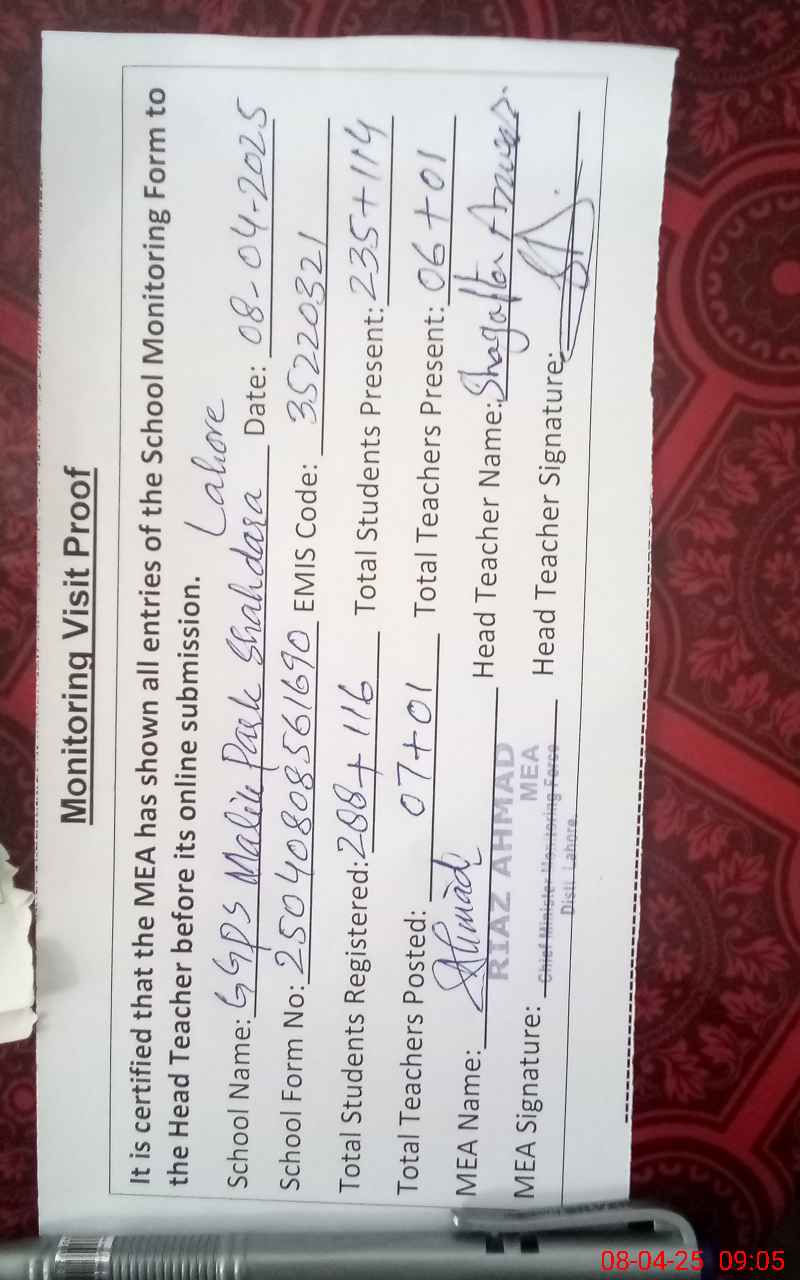 Monitoring Visit Proof
It is certified that the MEA has shown all entries of the School Monitoring Form to
the Head Teacher before its online submission.
School Name: GGPS Malik Park Shahdara Lahore Date: 08-04-2025
School Form No: 25040808561690 EMIS Code: 35220321
Total Students Registered: 288+116 Total Students Present: 235+114
Total Teachers Posted: 07+01 Total Teachers Present: 06+01
MEA Name: Ahmad Head Teacher Name: Shagufta
RIAZ AHMAD
MEA
MEA Signature: Head Teacher Signature:
Chief Minister Monitoring Force
Distt. Lahore
08-04-25 09:05